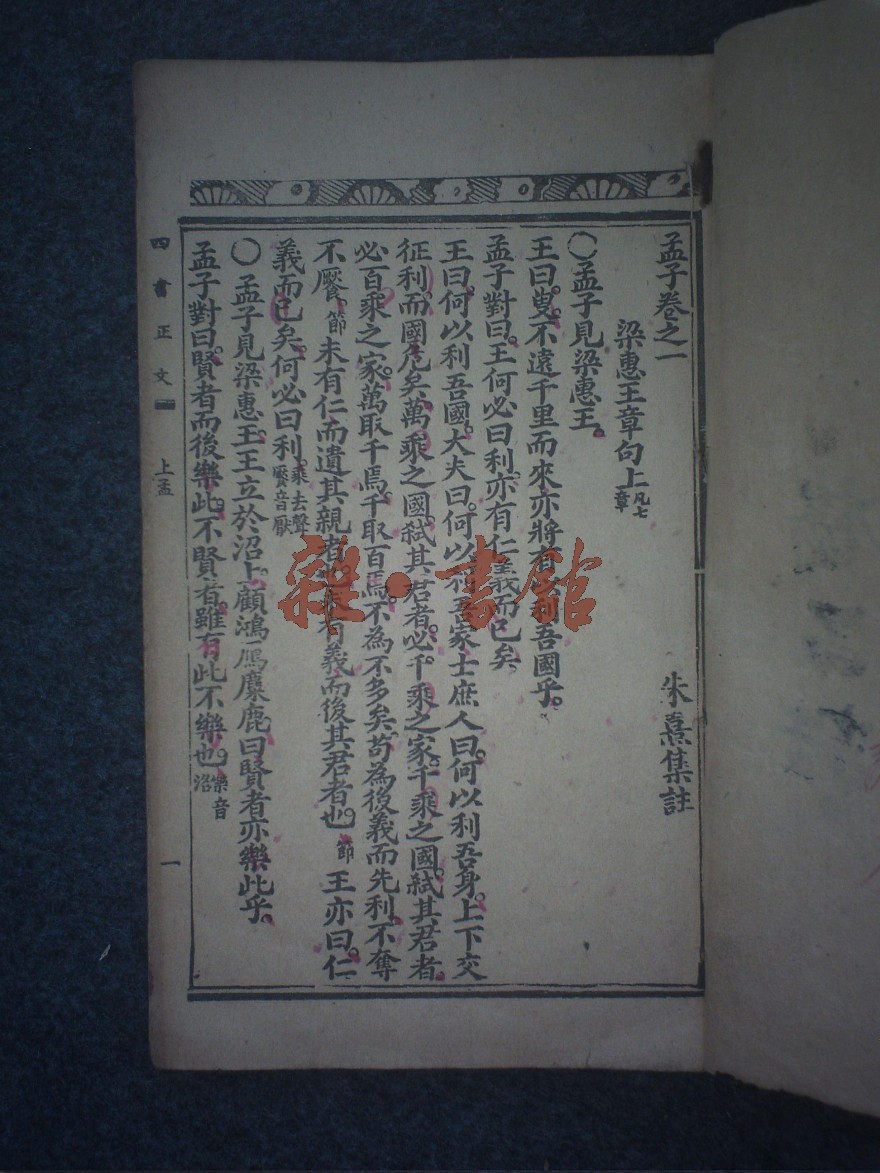 孟子卷之一
朱熹集註
梁惠王章句上 凡七章
〇孟子見梁惠王。
王曰。叟。不遠千里而來亦將有利吾國乎。
孟子對曰。王何必曰利。亦有仁義而已矣
王曰。何以利吾國。大夫曰。何以利吾家士庶人曰。何以利吾身。上下交
征利。而國危矣萬乘之國。弒其君者。必千乘之家。千乘之國。弒其君者。
必百乘之家。萬取千焉。千取百焉。不為不多矣。苟為後義而先利。不奪
不饜。節 未有仁而遺其親者也。未有義而後其君者也。節 王亦曰。仁
義而已矣。何必曰利。乘去聲 饜音厭
〇孟子見梁惠王。王立於沼上。顧鴻鴈麋鹿。曰賢者亦樂此乎。
孟子對曰。賢者而後樂此。不賢者。雖有此不樂也。樂音洛
四書正文
上孟
一
雜·書館